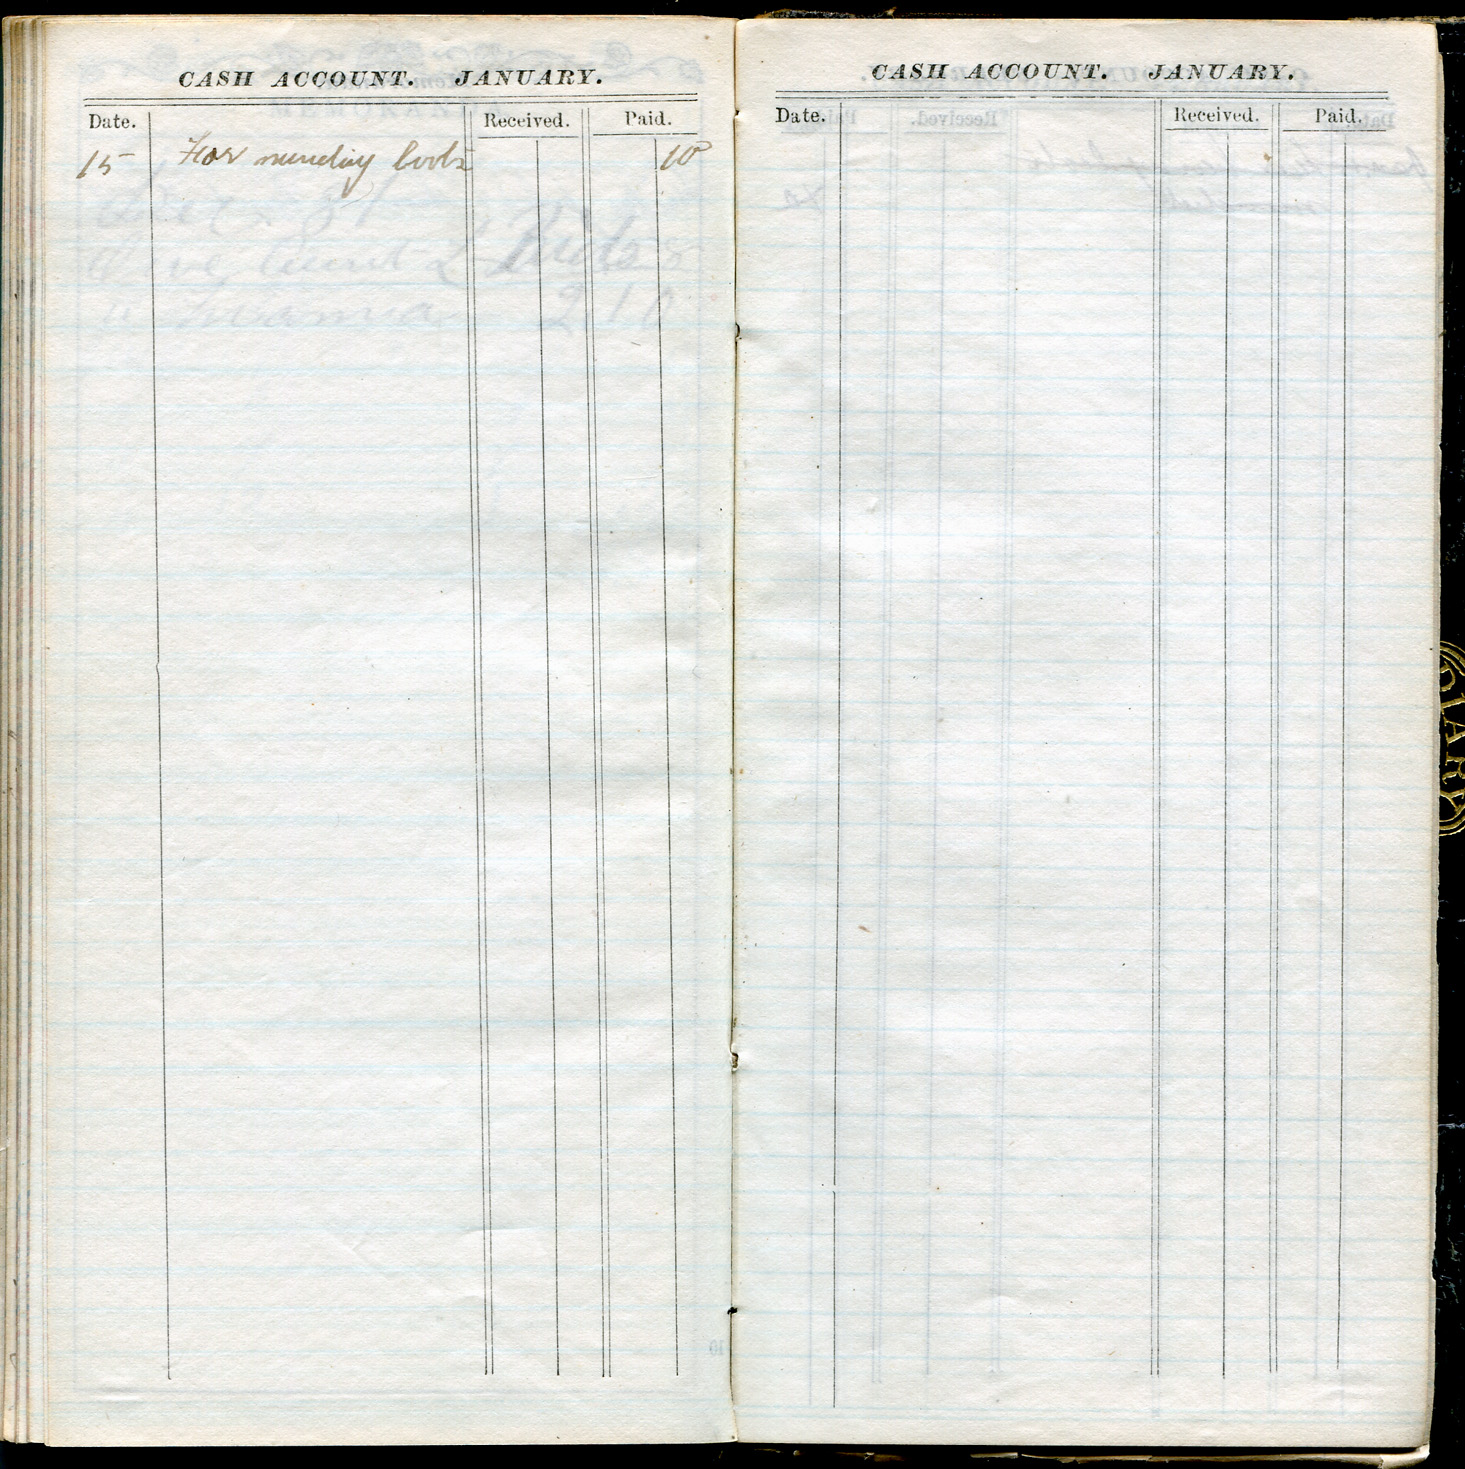 CASH ACCOUNT. JANUARY.
Date. Received. Paid.
15 For mending boots 10
CASH ACCOUNT. JANUARY.
Date. Received. Paid.
DIARY